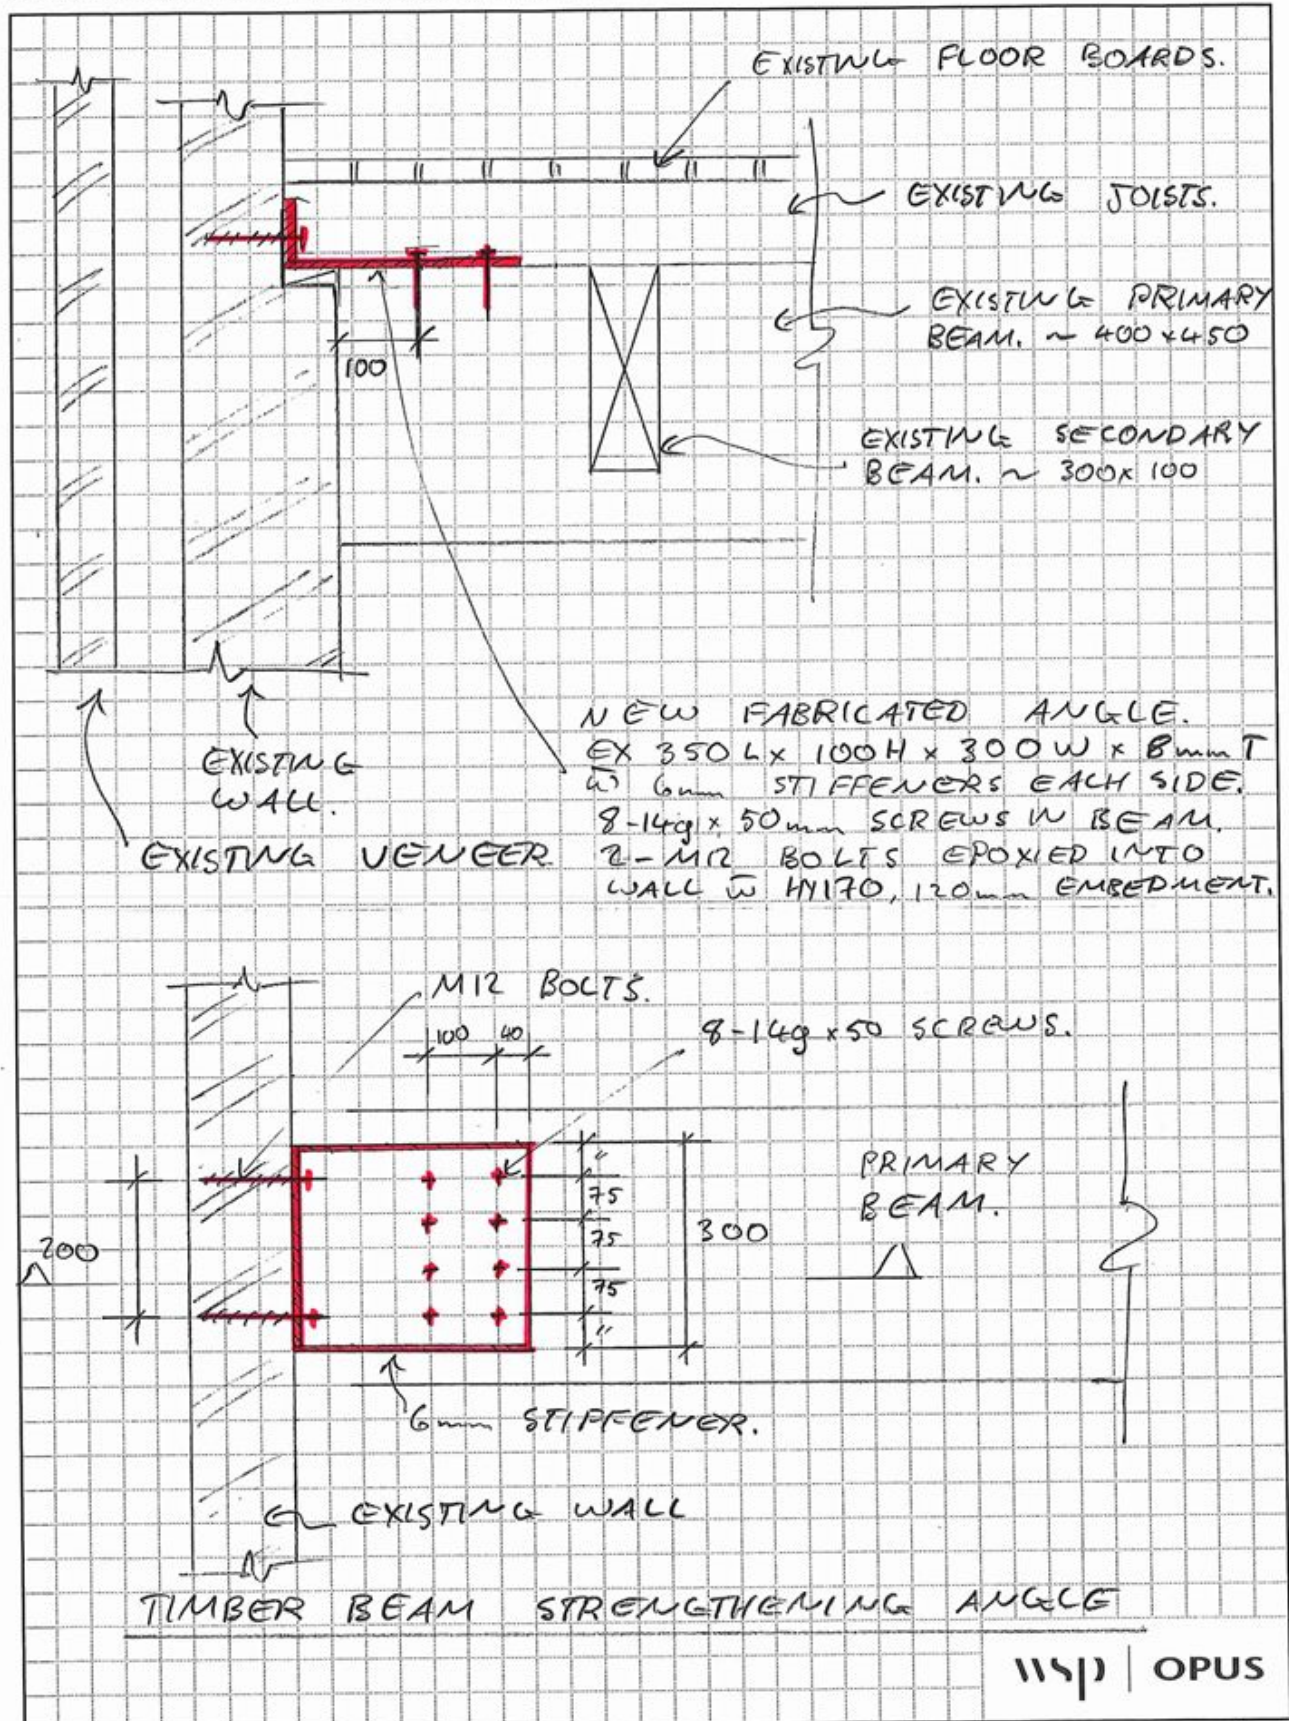 EXISTING FLOOR BOARDS.
EXISTING JOISTS.
EXISTING PRIMARY
BEAM. ~ 400 x 450
100
EXISTING SECONDARY
BEAM. ~ 300x100
NEW FABRICATED ANGLE.
EX 350L x 100H x 300W x 8mm T
w̄ 6mm STIFFENERS EACH SIDE.
8-14g x 50mm SCREWS IN BEAM.
2-M12 BOLTS EPOXIED INTO
WALL w̄ HY170, 120mm EMBEDMENT.
EXISTING
WALL.
EXISTING VENEER
M12 BOLTS.
8-14g x 50 SCREWS.
100 40
"
75
75
75
"
300
200
PRIMARY
BEAM.
6mm STIFFENER.
EXISTING WALL
TIMBER BEAM STRENGTHENING ANGLE
wsp | OPUS